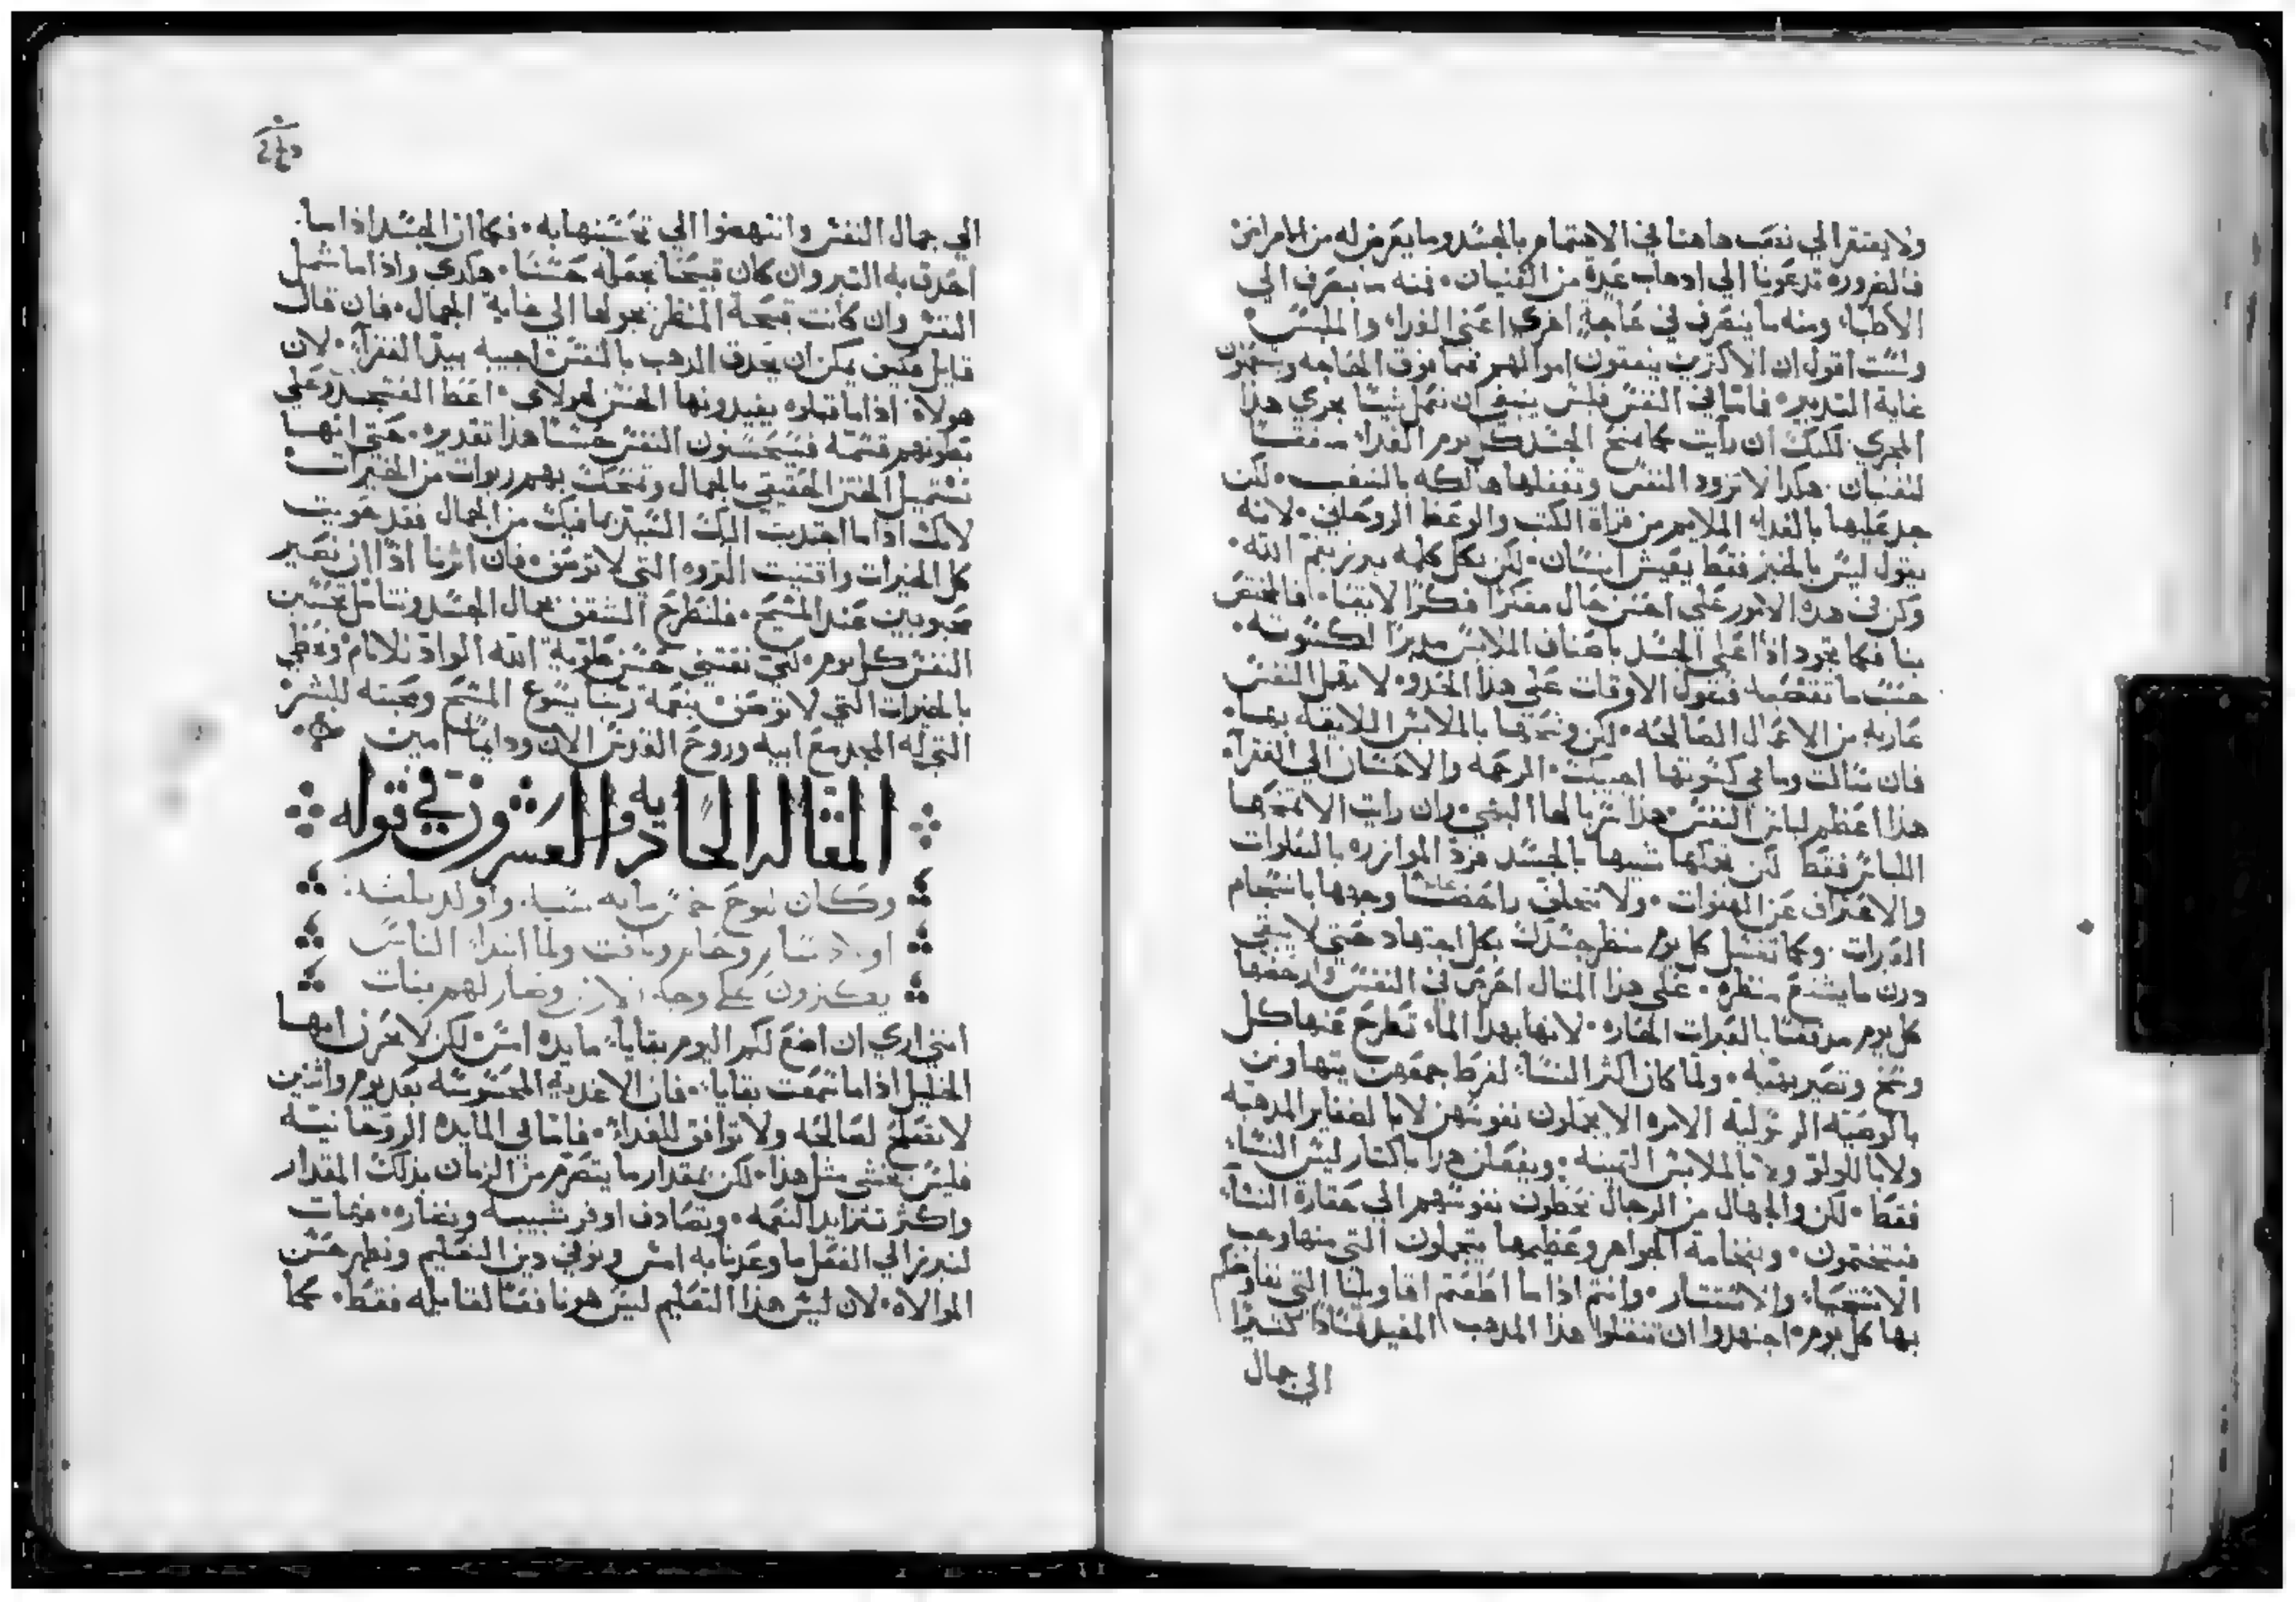 ولا يفتقر الي نعت هاهنا في الاهتمام بالجسد وما يعرض له من الامراض
فالضروره تدعونا الي ادهاب عدة من القنيان فمنه ما يصرف الي
الاطباء ومنه ما ينصرف في حاجة اخري اعني الغداء والملبس
ولست اقول ان الاكثرين ينفقون اموالهم فيما فوق الحاجه
غاية التدبير فاما في النفس فليس ينبغي ان نعمل شيا يجري هذا
المجري لكنك ان رأيت كما تمنح الجسد كل يوم الغداء
هكدا لا تزود النفس وتغفلها هالكه بالسغب لكن
جد عليها بالغداء الملايم من قراة الكتب والوعظ الروحاني لانه
يقول ليس بالخبز فقط يعيش انسان لكن بكل كلمه تبرز من فم الله
وكن في هده الامور علي احسن حال مفكرا فكرا لايقا
بنا فكما تجود اذا علي الجسد باصناف الملابس مدبرا لكسوته
حسب ما تقتضيه فصول الاوقات علي هذا الحدو لا تغفل النفس
عاريه من الاعمال الصالحه لكن وشحها بالملابس اللايقه بها
فان سالت وما هي كسوتها اجبتك المرحمه والاحسان الي الفقرا
هذا اعظم لباس النفس هذا سربالها البهي وان رايت الا تمنحها
اللباس فقط لكن تجملها شبيها بالجسد فزد الموازره بالصلوات
والاعتراف عن الهفوات ولا تتخلف راحضا وجهها بانسجام
العبرات وكما تغسل كل يوم منظر جسدك بكل اجتهاد حتي لا يبقي
درن ما يشنع منظره علي هذا المثال احرص في النفس وارحضها
كل يوم مدنفسا بالعبرات الحاره لانها بهدا الماء تطرح عنها كل
وسخ وتصير بهيه ولما كان اكثر النساء لفرط جهلهن يتهاون
بالوصيه الرسوليه الامره الا يجملون نفوسهن لا بالضفاير المدهبه
ولا باللولو ولا بالملابس الثمينه ويفعلن هدا باكثار ليس النساء
فقط لكن والجهال من الرجال يحطون نفوسهم الي حقارة النساء
فيتختمون وبفخامة الجواهر وعظيمها يتجملون التي منها وجب
الاستحياء والاستتار وانتم اذا ما اطعتم اقاويلنا التي نفاوضكم
بها كل يوم اجتهدوا ان تنقلوا هذا المدهب المفيد فسادا كثيرا
الي جمال
الي جمال النفس وانتهضوا الي تحسينها به فكما ان الجسد اذا ما
احدق به التبر وان كان قبيحا يجعله حسنا هكدي واذا ما شمل
النفس وان كانت قبيحة المنظر يحولها الي غاية الجمال فان قال
قايل فكيف يمكن ان يحدق الدهب بالنفس اجيبه بيد الفقرآء لان
هولاء اذا ما قبلوه يفيدونها الحسن لهولاي اعط العسجد
قسمه فسيحسنون النفس حسنا هذا تقديره حتي انها
تستميل الختن الحقيقي بالجمال وتمنحك بهم ربوات من الخيرات
لانك اذا ما اجتدبت اليك السيد بما فيك من الجمال فقد حويت
كل الخيرات واقتنيت الثروه التي لا توصف فان اثرنا اذا ان نصير
محبوبين عند المسيح فلنطرح الشغف بجمال الجسد ونتامل تحسين
النفس كل يوم لكي نقتني حسن طوية الله الواد للانام ونحظي
بالخيرات التي لا توصف بنعمة ربنا يسوع المسيح ومحبته للبشر
التي له المجد مع ابيه وروح القدس الان ودايما امين
المقاله الحاديه والعشرون في قوله
وكان نوح خمس مايه سنه واولد ثلثه
اولاد ساير وحام ويافت ولما ابتداء الناس
يعكثرون علي وجه الارض وصار لهم بنات
انني اري ان اضع لكم اليوم بقايا مايده امس لكن لا تحزن ايها
الخليل اذا ما سمعت بقايا فان الاغديه المحسوسه بعد يوم واثنين
لا تصلح لصالحه ولا توافق للغداء فاما في المايده الروحانيه
فليس نخشي مثل هذا لكن بمقدار ما يتصرم من الزمان بدلك المقدار
واكثر تتزايد النعمه وتصادف اوفر شبيبه ونضاره فهات
لنبرز الي الفعل ما وعدنا به امس ونوفي دين التعليم ونطهر حسن
الموالاه لان ليس هذا التعليم ليس هو نافعا لقابليه فقط كما